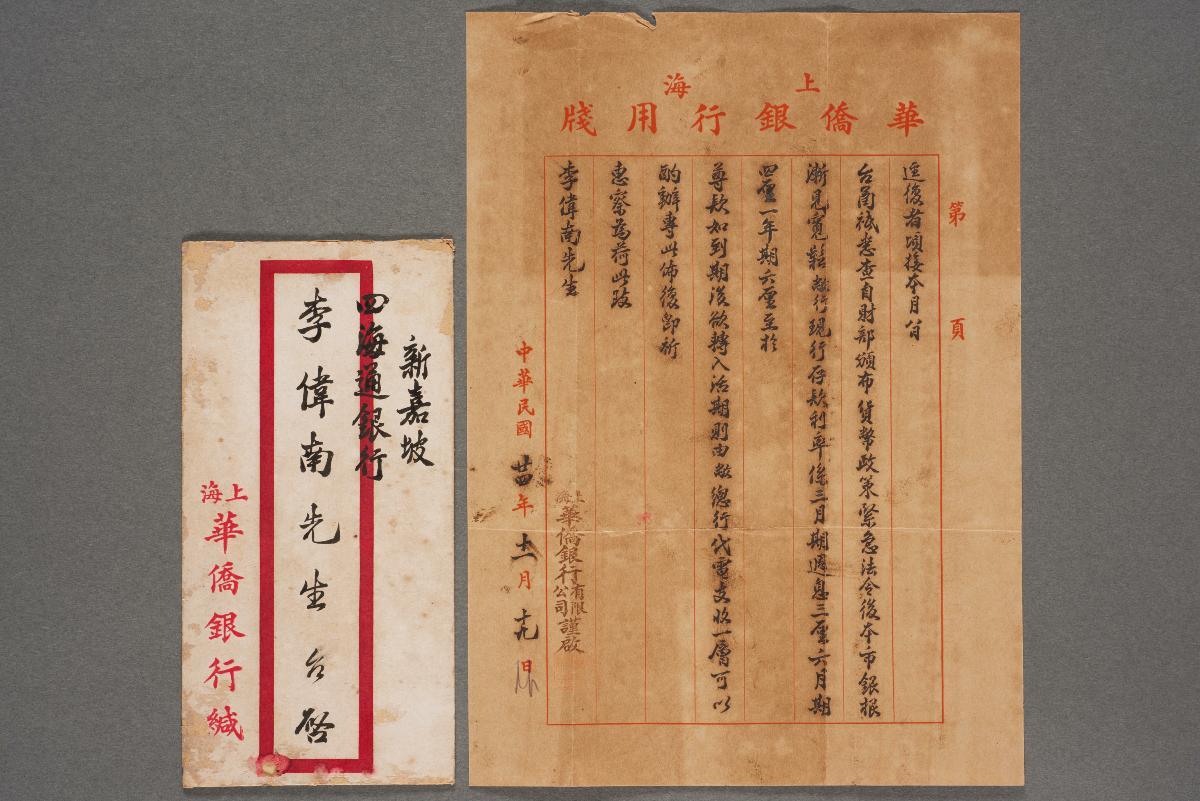 新嘉坡
四海通銀行
李偉南先生台啓
上海
華僑銀行緘
上海
華僑銀行用牋
第 頁
逕復者頃接本月八日
台函祗悉查自財部頒布貨幣政策緊急法令後本市銀根
漸見寬鬆敝行現行存款利率係三月期週息三厘六月期
四厘一年期六厘至於
尊款如到期後欲轉入活期則由敝總行代電支收一層可以
酌辦專此佈復即祈
惠察為荷此致
李偉南先生
上海華僑銀行有限公司謹啟
中華民國廿四年十二月十九日